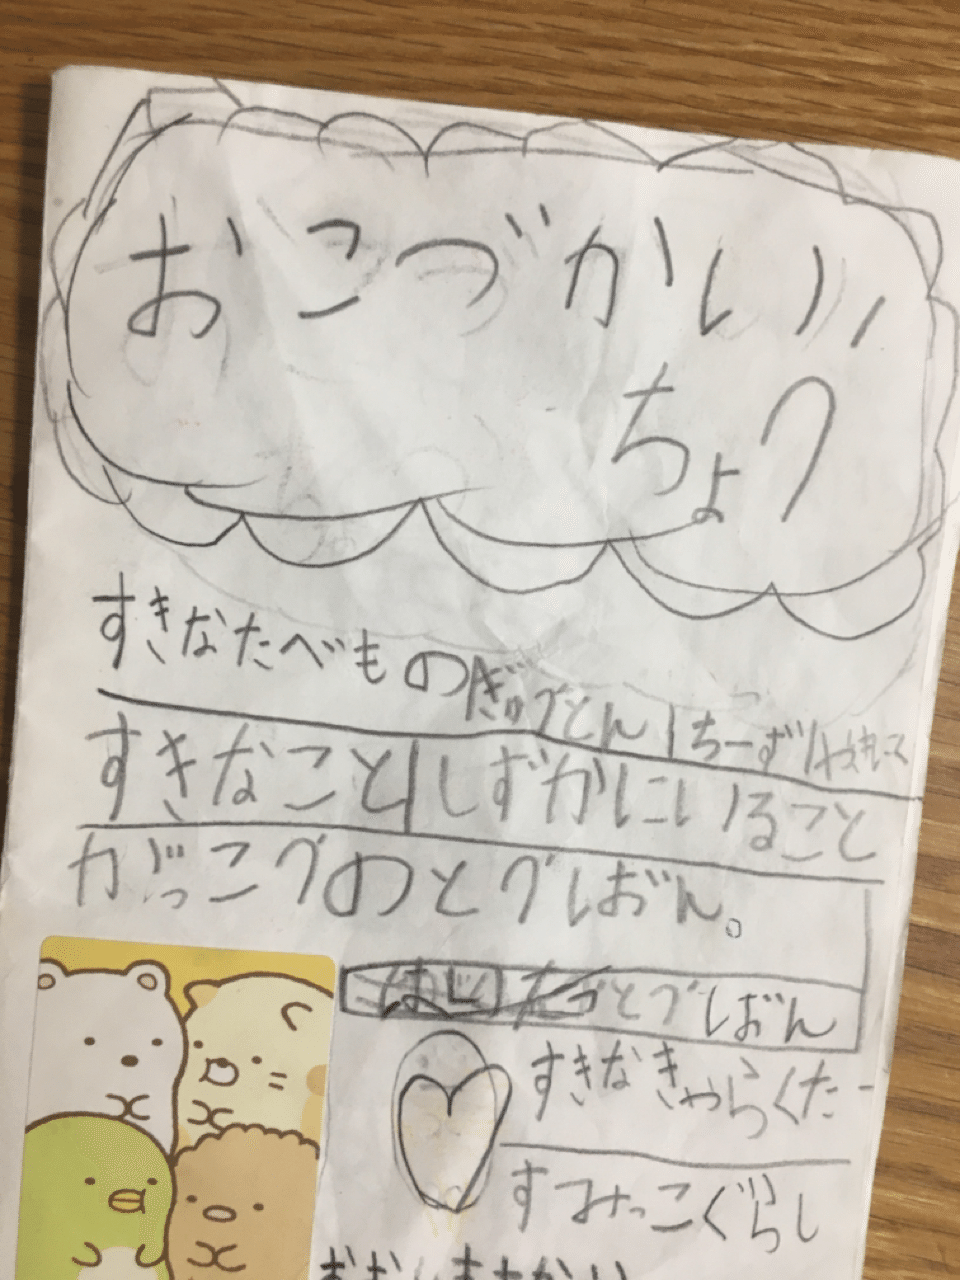 おこづかい
ちょう
すきなたべもの ぎゅうどん ちーず
すきなこと しずかにいること
がっこうのとうばん。
とうばん
すきなきゃらくたー
すみっこぐらし